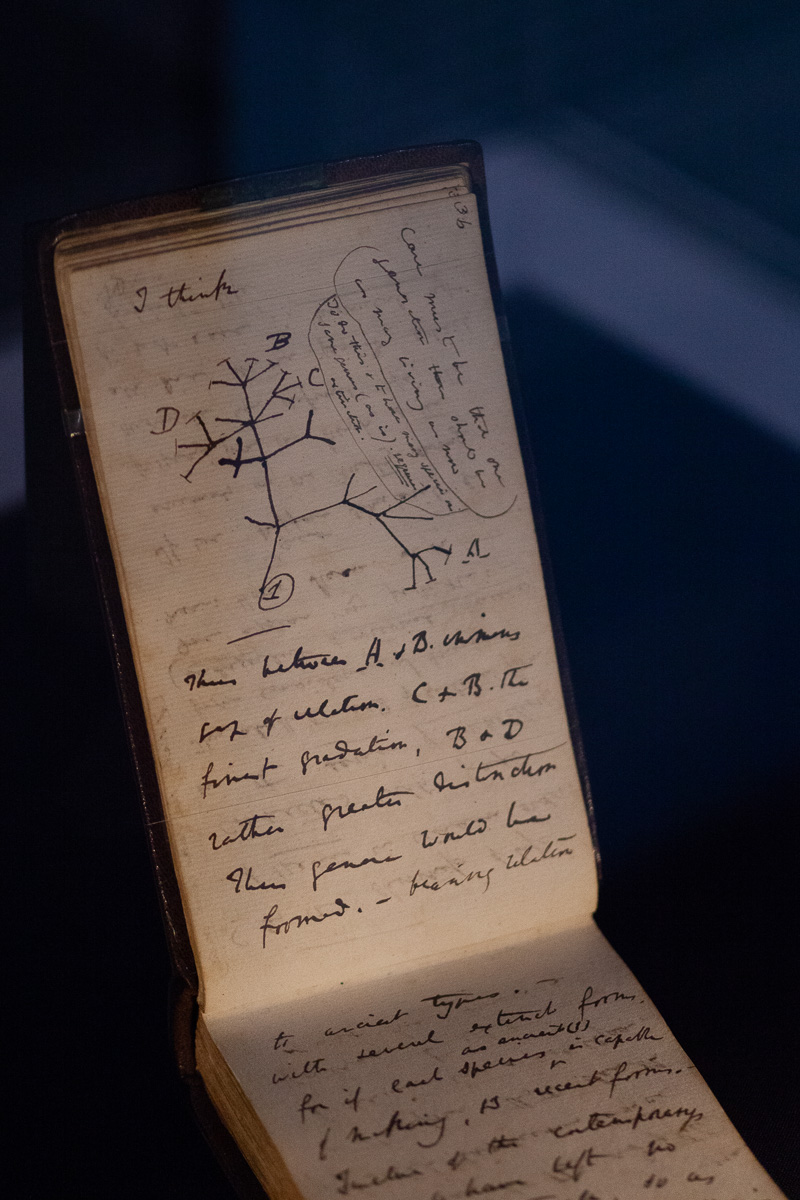 36
I think
Case must be that one
generation then should be
as many living as now
To do this & to have many species in
same genus (as is) requires
extinction.
B
C
D
A
1
Thus between A & B. immens
gap of relation. C & B. the
finest gradation, B & D
rather greater distinction
Thus genera would be
formed. — bearing relation
to ancient types. —
with several extinct forms.
for if each species as ancient (1)
is capable
of making, 13 recent forms. —
Twelve of the contemporarys
have left no
so as